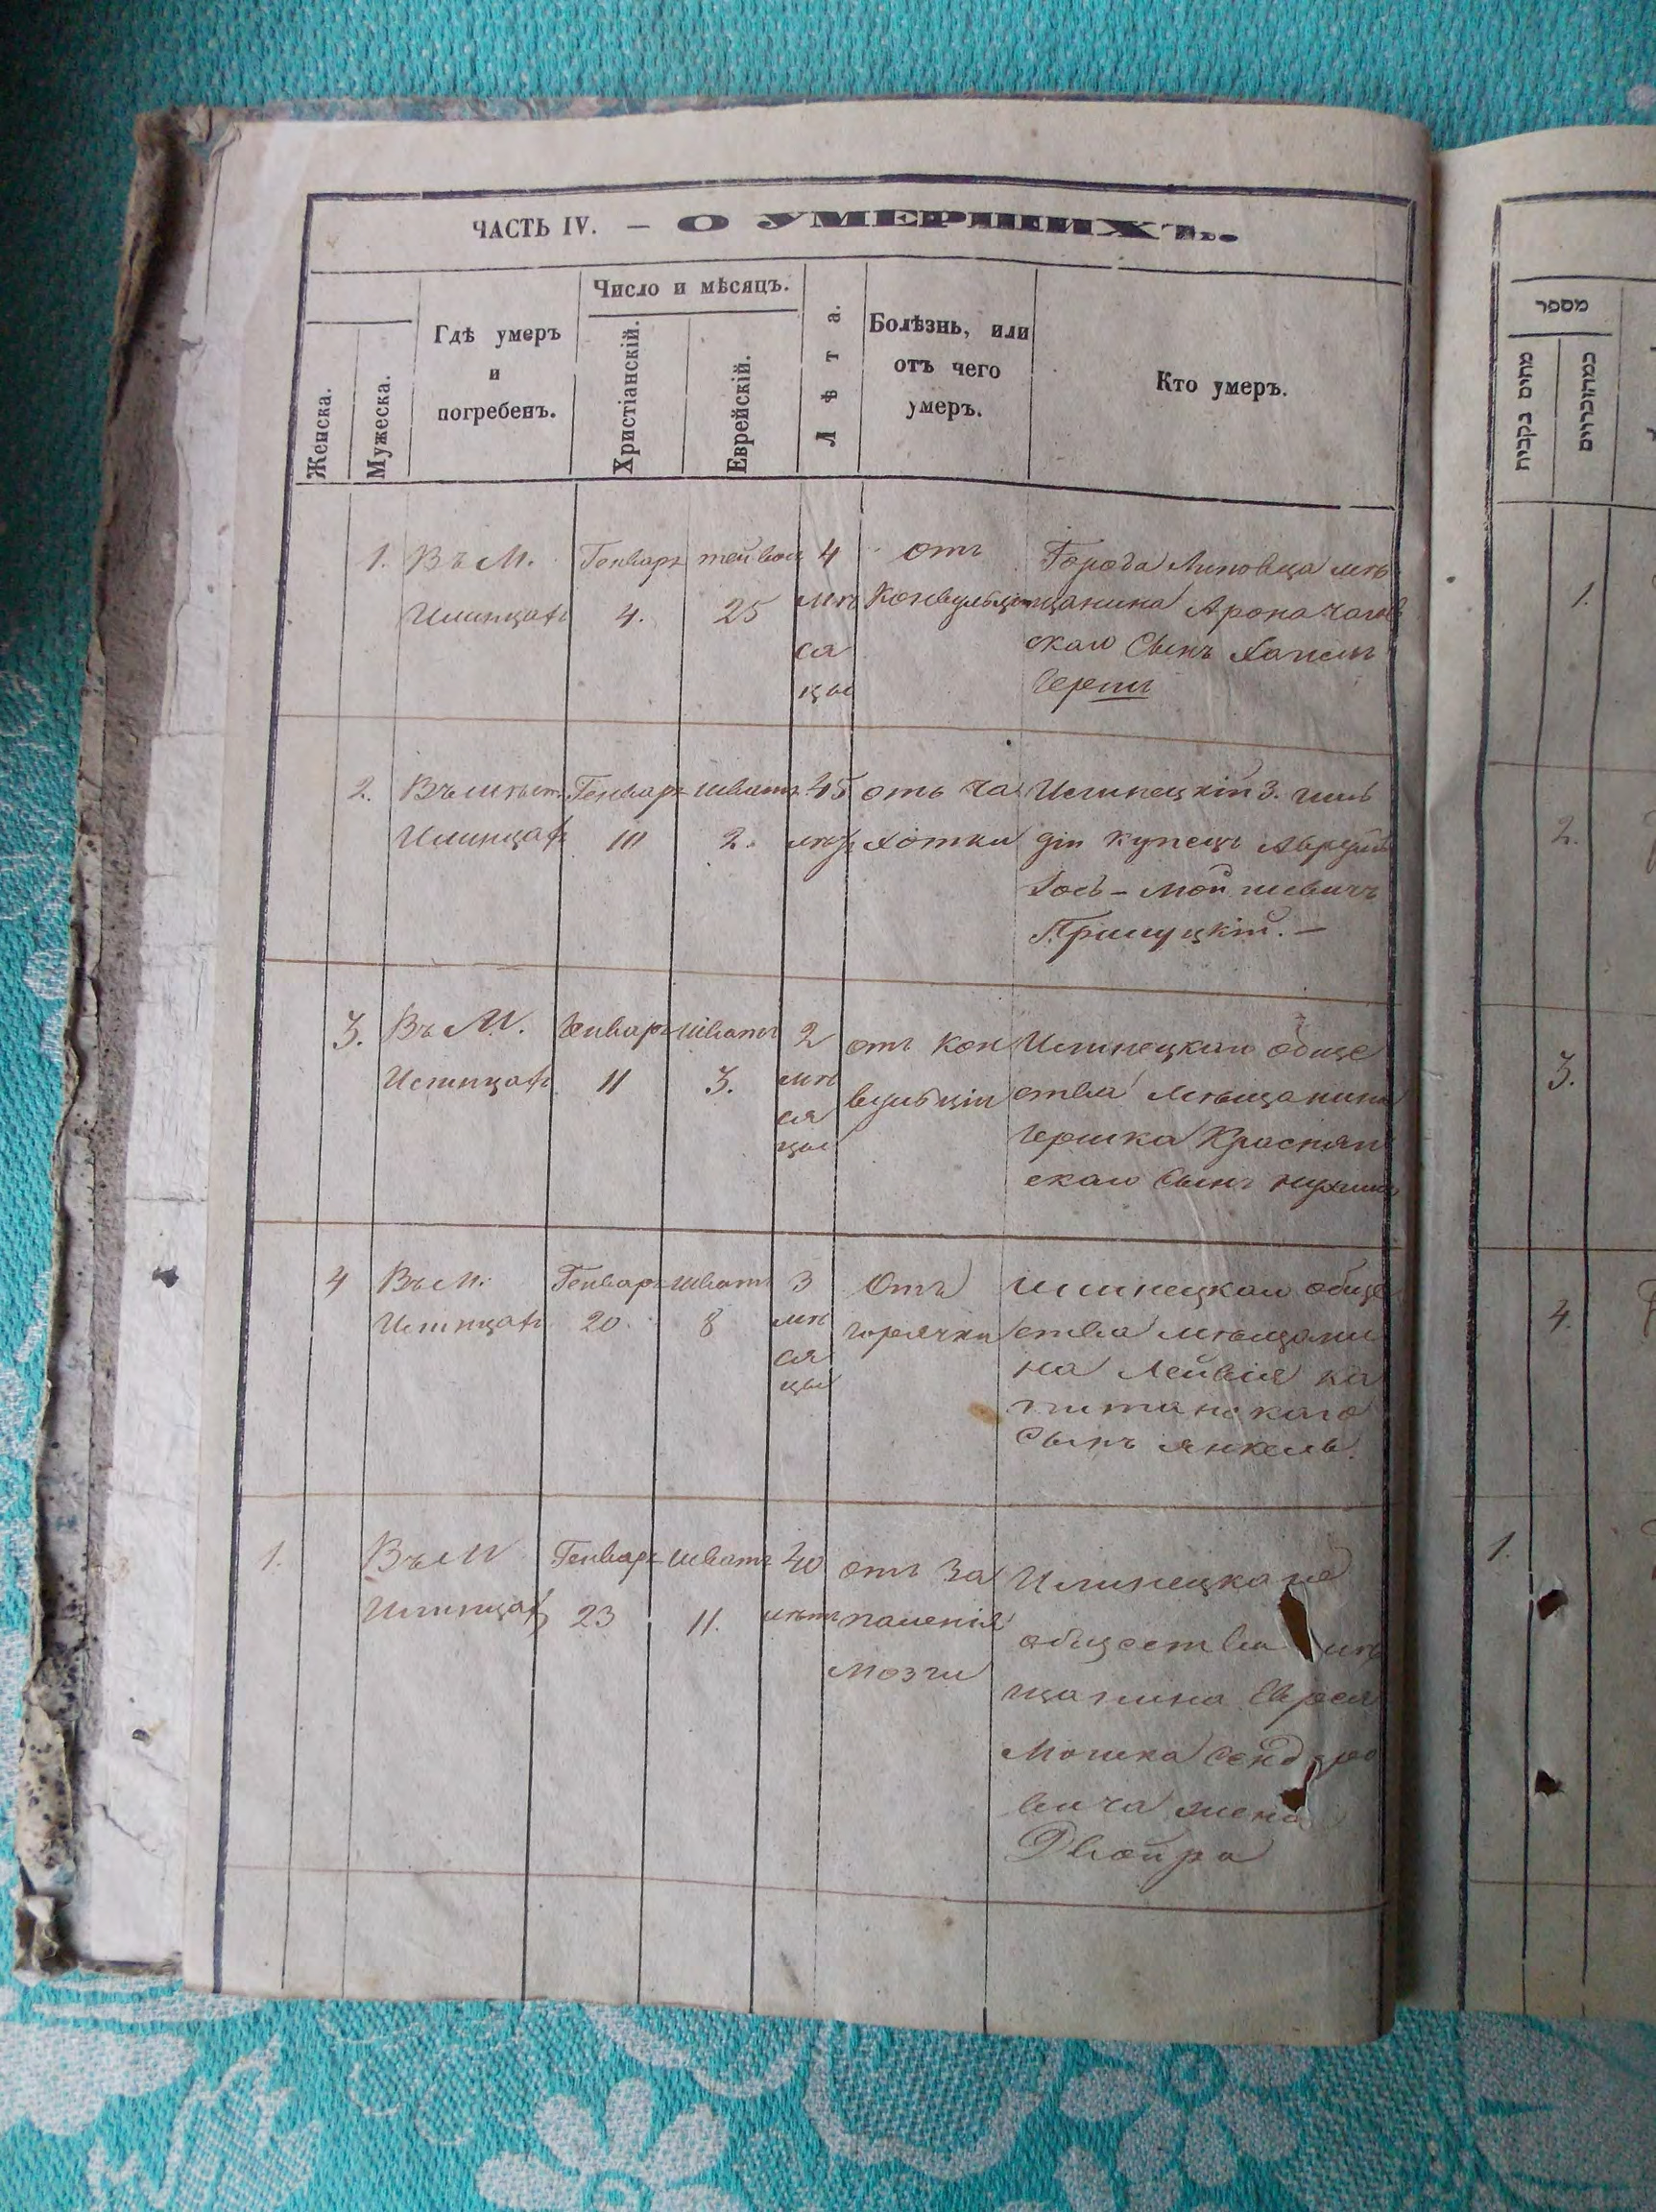 ЧАСТЬ IV. — О УМЕРШИХЪ.
Женска.
Мужеска.
Гдѣ умеръ
и
погребенъ.
Число и мѣсяцъ.
Христіанскій.
Еврейскій.
Лѣта.
Болѣзнь, или
отъ чего
умеръ.
Кто умеръ.
1.
Въ М.
Илинцахъ
Генваря
4.
тейвос
25
4
мѣ
ся
цы
отъ
Конвульціи
Города Липовца мѣ
щанина Арона
скаго Сынъ
Герш
2.
Въ мѣст.
Илинцахъ
Генваря
10
шватъ
2.
45
лѣтъ
отъ ча
хотки
Илинецкій 3. гиль
діи купецъ
Іось - Мойшевичъ
Прилуцкій. —
3.
Въ М.
Илинцахъ
Генваря
11
шватъ
3.
2
мѣ
ся
цы
отъ кон
вульціи
Илинецкаго обще
ства мѣщанина
Гершка Краснян
скаго Сынъ Нухимъ
4
Въ М.
Илинцахъ
Генваря
20
шватъ
8
3
мѣ
ся
цы
Отъ
горячки
Илинецкаго обще
ства мѣщани
на Лейвія ка
питанскаго
Сынъ Янкель.
1.
Въ М
Илинцахъ
Генваря
23
шватъ
11.
40
лѣтъ
отъ За
паленія
мозги
Илинецкаго
общества мѣ
щанина Еврея
Мошка Сендеро
вича жена
Двойра
מספר
מתים נקבות
1.
2.
3.
4.
1.